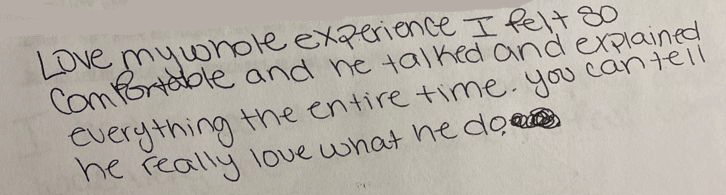 Love my whole experience I felt so
comfortable and he talked and explained
everything the entire time. you can tell
he really love what he do.